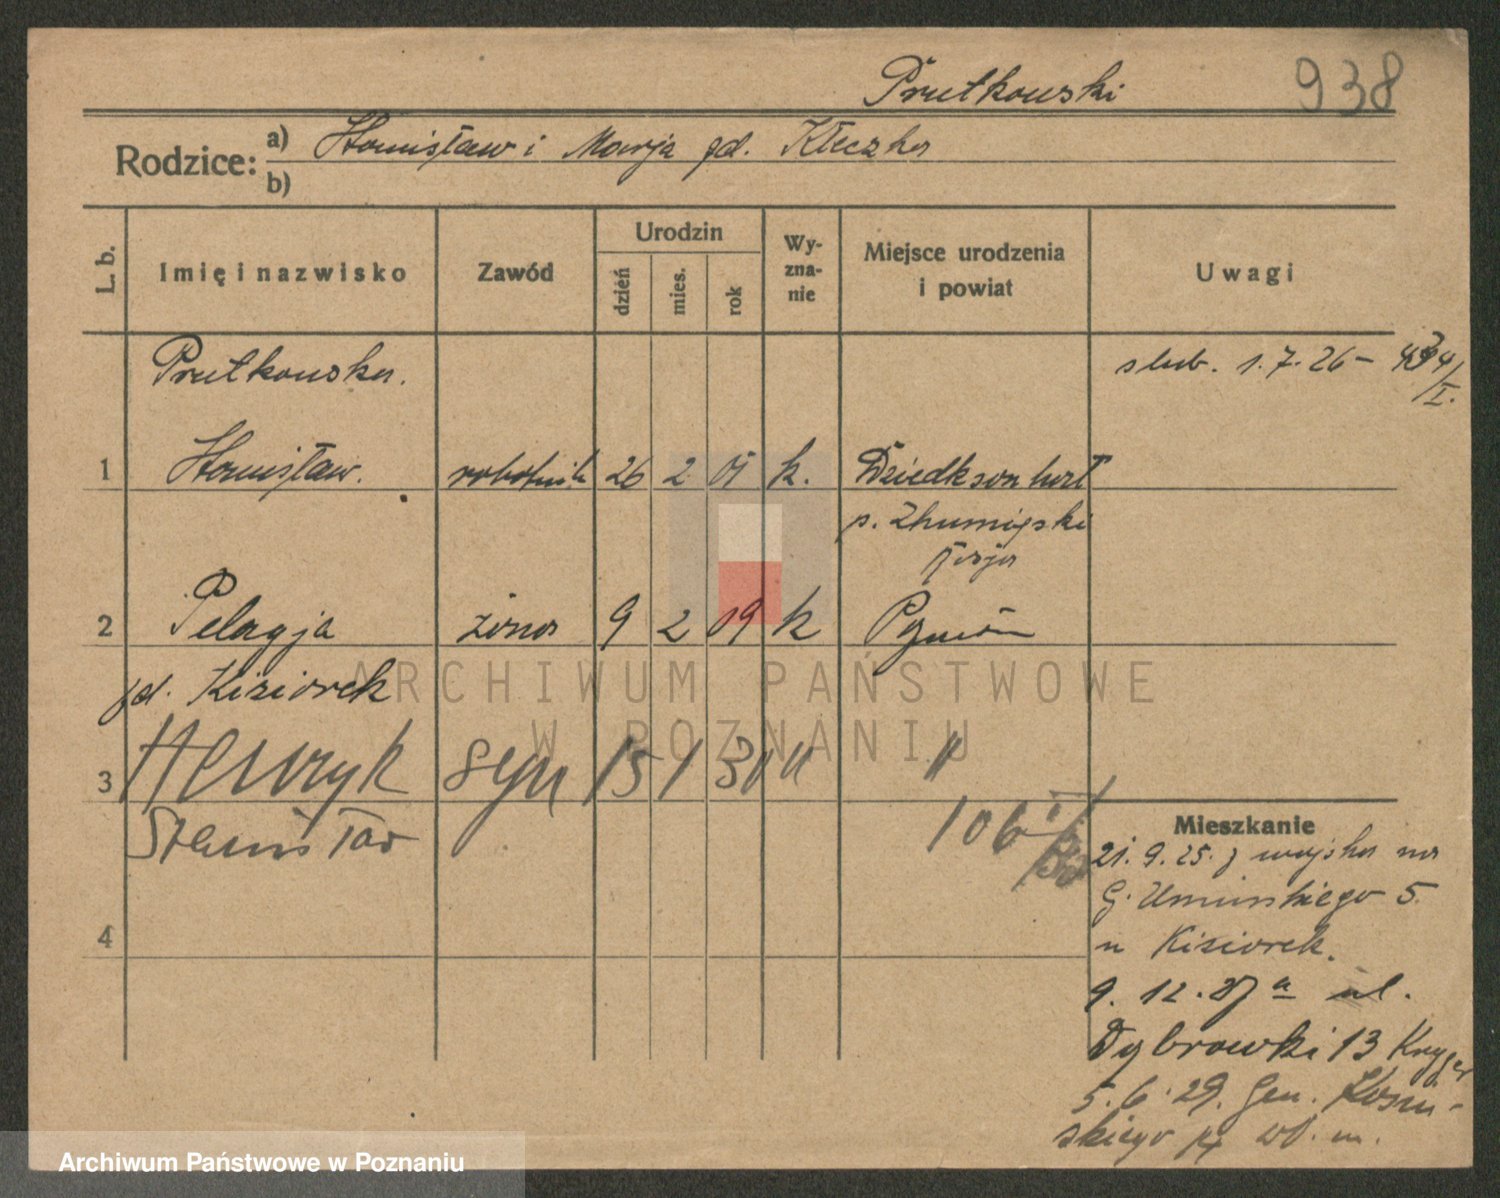 Prutkowski 938
Rodzice: a) Stanisław i Marja zd. Kłeczka
b)
L. b. Imię i nazwisko Zawód Urodzin dzień mies. rok Wyznanie Miejsce urodzenia i powiat Uwagi
Prutkowska. slub. 1.7.26 –
1 Stanisław. robotnik 26 2 01 k.
p.
Rosja
2 Pelagja żona 9 2 09 k Poznań
zd. Kisiorek
3 Henryk syn 15 1 30 " "
Stanisław 106
Mieszkanie
21. 9. 25. z wojska na
G. Umińskiego 5.
u Kisiorek.
4
9. 12. 27 a ul.
Dąbrowki 13 Kryger
5. 6. 29. Gen. Kosiń-
skiego wł. m.
ARCHIWUM PAŃSTWOWE
W POZNANIU
Archiwum Państwowe w Poznaniu